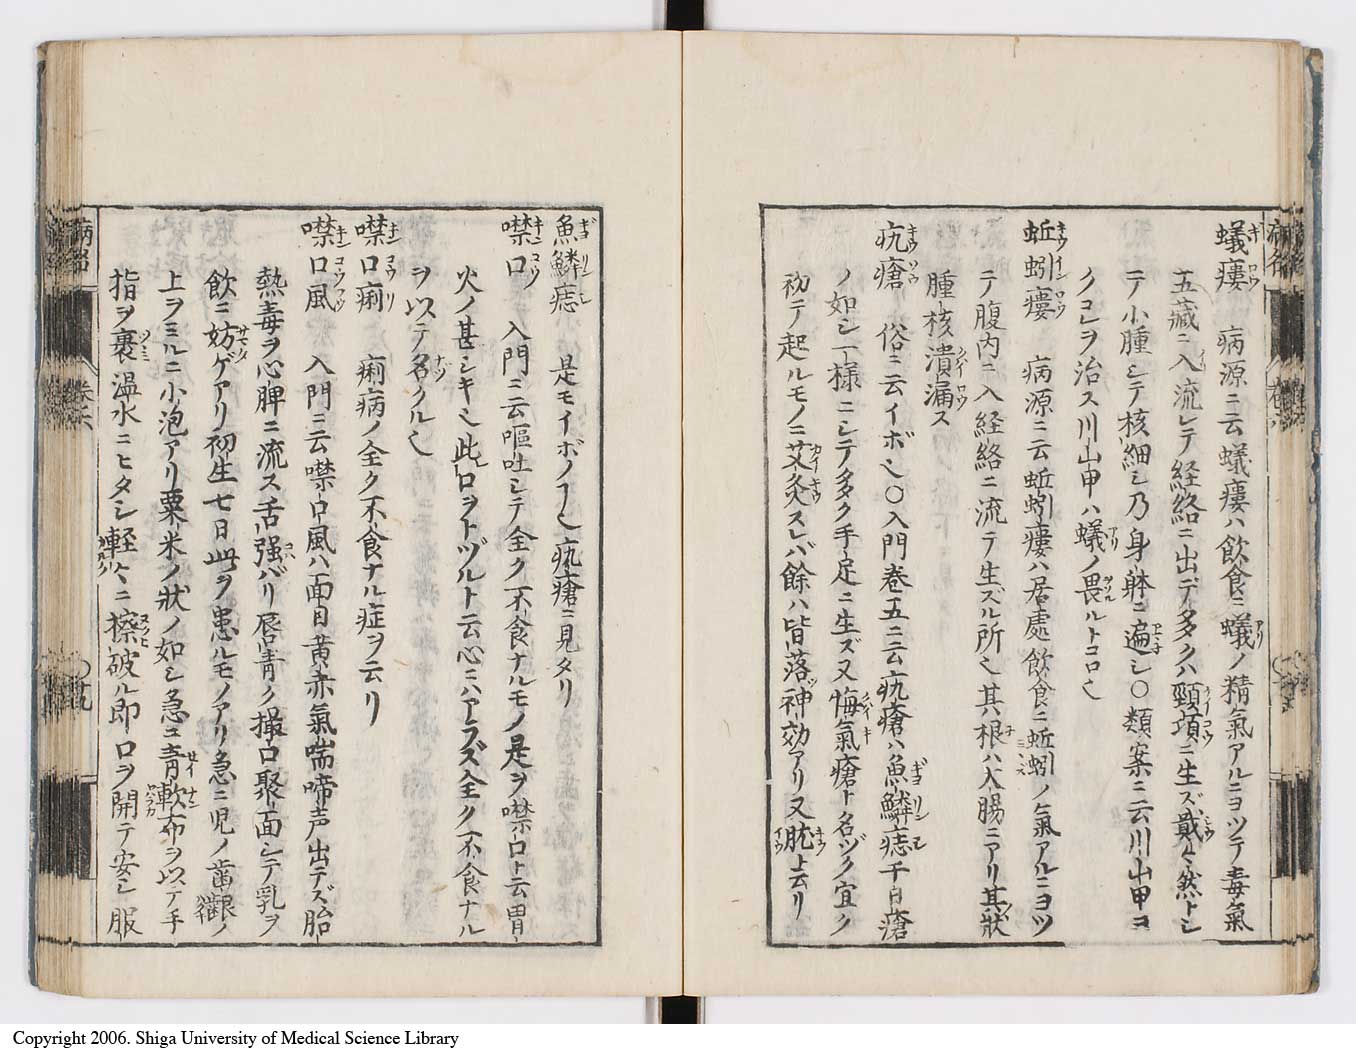 蟻瘻 病源ニ云蟻瘻ハ飲食ニ蟻ノ精氣アルニヨツテ毒氣
五藏ニ入流レテ経絡ニ出デ多クハ頸項ニ生ズ戴〻然トシ
テ小腫シテ核細シ乃身躰ニ遍シ〇類案ニ云川山甲コ
ノコレヲ治ス川山甲ハ蟻ノ畏ルトコロ也
蚯蚓瘻 病源ニ云蚯蚓瘻ハ居處飲食ニ蚯蚓ノ氣アルニヨツ
テ腹内ニ入経絡ニ流テ生ズル所也其根ハ大腸ニアリ其狀
腫核潰漏ス
疣瘡 俗ニ云イボ也〇入門巻五ニ云疣瘡ハ魚鱗痣千日瘡
ノ如シ一様ニシテ多ク手足ニ生ズ又悔氣瘡ト名ヅク宜ク
初テ起ルモノニ艾灸スレバ餘ハ皆落神効アリ又肬上云リ
魚鱗痣 是モイボノ㕝也疣瘡ニ見タリ
噤口 入門ニ云嘔吐シテ全ク不食ナルモノ是ヲ噤口ト云胃
火ノ甚シキ也此口ヲトヅルト云心ニハアラズ全ク不食ナル
ヲ以テ名クル也
噤口痢 痢病ノ全ク不食ナル症ヲ云リ
噤口風 入門ニ云噤口風ハ面目黄赤氣喘啼声出デズ胎
熱毒ヲ心脾ニ流ス舌強バリ唇青ク撮口聚面シテ乳ヲ
飲ニ妨ゲアリ初生七日此ヲ患ルモノアリ急ニ児ノ歯齦ノ
上ヲミルニ小泡アリ粟米ノ狀ノ如シ急ニ青軟布ヲ以テ手
指ヲ裹温水ニヒタシ軽〻ニ擦破ル即口ヲ開テ安シ服
病名
巻六
Copyright 2006. Shiga University of Medical Science Library